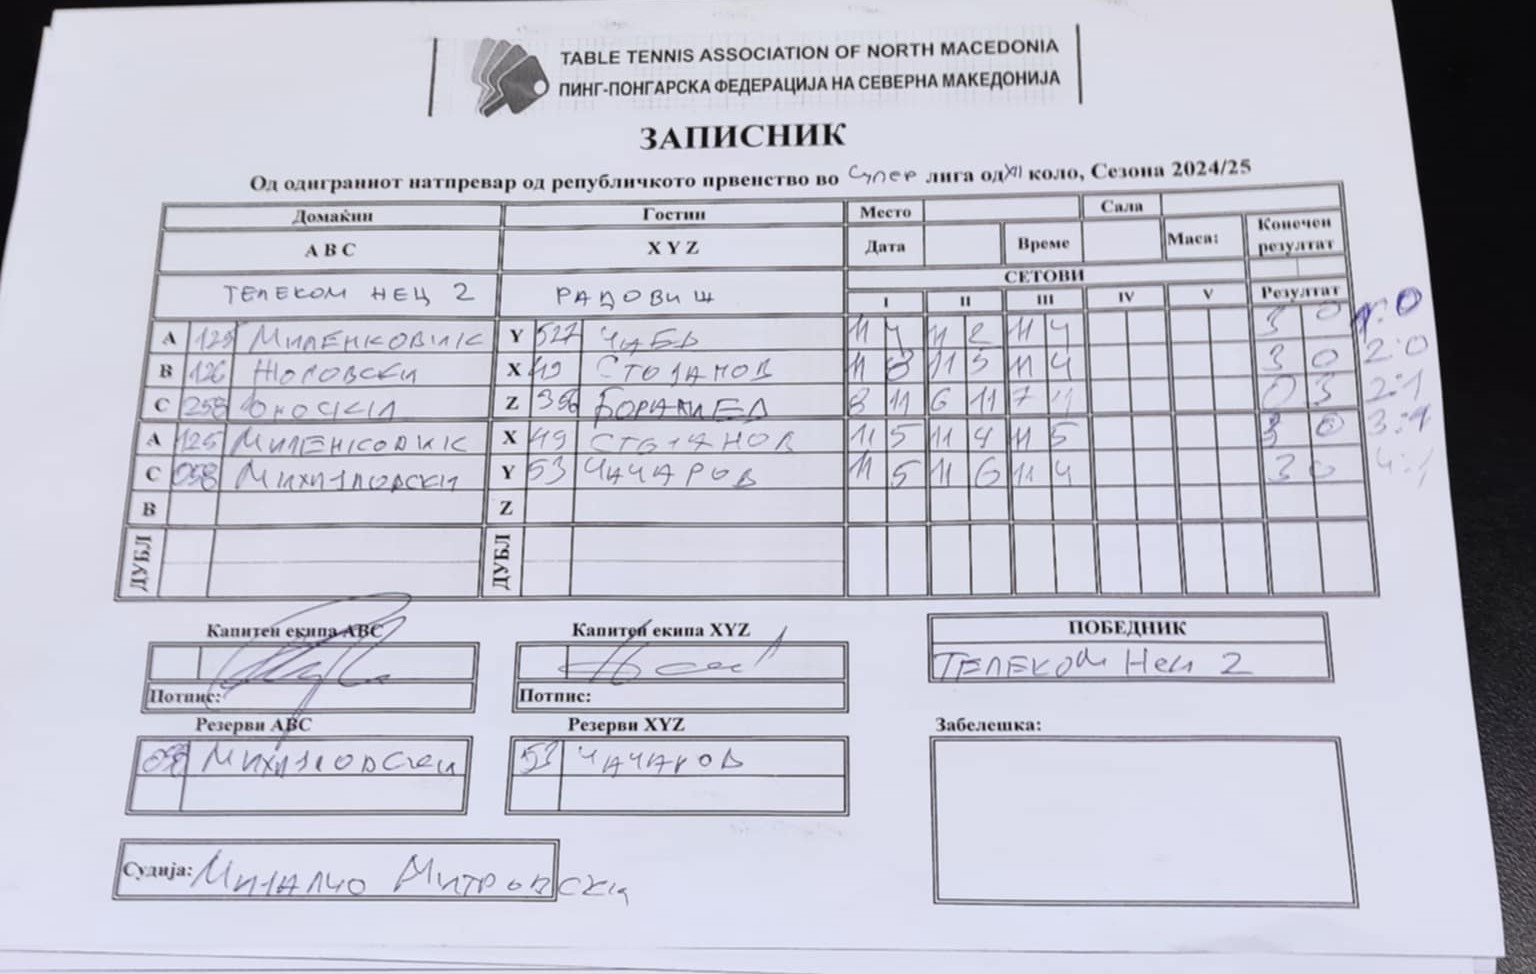 TABLE TENNIS ASSOCIATION OF NORTH MACEDONIA
ПИНГ-ПОНГАРСКА ФЕДЕРАЦИЈА НА СЕВЕРНА МАКЕДОНИЈА
ЗАПИСНИК
Од одиграниот натпревар од републичкото првенство во Супер лига од XII коло, Сезона 2024/25
Домаќин Гостин Место Сала Конечен резултат
A B C X Y Z Дата Време Маса:
СЕТОВИ
ТЕЛЕКОМ НЕЦ 2 РАДОВИШ I II III IV V Резултат
A 125 МИЛЕНКОВИК Y 527 11 4 11 2 11 4 3 0 1:0
B 126 X 49 СТОЈАНОВ 11 8 11 5 11 4 3 0 2:0
C 258 Z 8 11 6 11 7 11 0 3 2:1
A 125 МИЛЕНКОВИК X 49 СТОЈАНОВ 11 5 11 4 11 5 3 0 3:1
C 058 МИХАЈЛОВСКИ Y 53 ЧАЧАРОВ 11 5 11 6 11 4 3 0 4:1
B Z
ДУБЛ ДУБЛ
Капитен екипа ABC Капитен екипа XYZ ПОБЕДНИК
ТЕЛЕКОМ НЕЦ 2
Потпис: Потпис:
Резерви ABC Резерви XYZ Забелешка:
058 МИХАЈЛОВСКИ 53 ЧАЧАРОВ
Судија: МИХАЛЧО МИТРОВСКИ